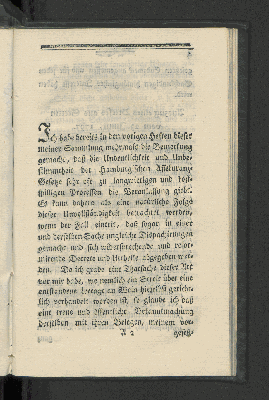 Ich habe bereits in den vorigen Heften dieser
meiner Sammlung mehrmals die Bemerkung
gemacht, daß die Undeutlichkeit und Unbe-
stimmtheit der Hamburg'schen Assecuranz-
Gesetze sehr oft zu langwierigen und kost-
spieligen Processen die Veranlassung giebt.
Es kann daher als eine natürliche Folge
dieser Unvollständigkeit betrachtet werden,
wenn der Fall eintrit, daß sogar in einer
und derselben Sache ungleiche Dispachirungen
gemacht und sich widersprechende und refor-
mirende Decrete und Urtheile abgegeben wer-
den. Da ich grade eine Thatsache dieser Art
vor mir habe, wo nemlich ein Streit über eine
entstandene Leccage an Wein hieselbst gericht-
lich verhandelt worden ist, so glaube ich daß
eine treue und öffentliche Bekanntmachung
derselben mit ihren Belegen, meinem vor-
A 2
gesetz-